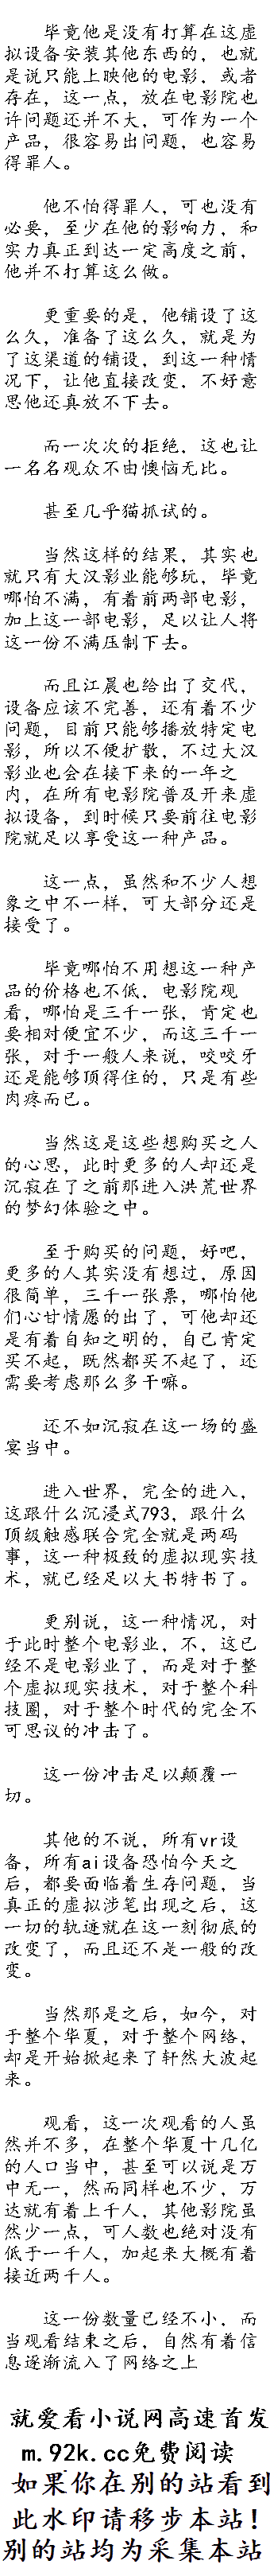 毕竟他是没有打算在这虚
拟设备安装其他东西的，也就
是说只能上映他的电影，或者
存在，这一点，放在电影院也
许问题还并不大，可作为一个
产品，很容易出问题，也容易
得罪人。
他不怕得罪人，可也没有
必要，至少在他的影响力，和
实力真正到达一定高度之前，
他并不打算这么做。
更重要的是，他铺设了这
么久，准备了这么久，就是为
了这渠道的铺设，到这一种情
况下，让他直接改变，不好意
思他还真放不下去。
而一次次的拒绝，这也让
一名名观众不由懊恼无比。
甚至几乎猫抓试的。
当然这样的结果，其实也
就只有大汉影业能够玩，毕竟
哪怕不满，有着前两部电影，
加上这一部电影，足以让人将
这一份不满压制下去。
而且江晨也给出了交代，
设备应该不完善，还有着不少
问题，目前只能够播放特定电
影，所以不便扩散，不过大汉
影业也会在接下来的一年之
内，在所有电影院普及开来虚
拟设备，到时候只要前往电影
院就足以享受这一种产品。
这一点，虽然和不少人想
象之中不一样，可大部分还是
接受了。
毕竟哪怕不用想这一种产
品的价格也不低，电影院观
看，哪怕是三千一张，肯定也
要相对便宜不少，而这三千一
张，对于一般人来说，咬咬牙
还是能够顶得住的，只是有些
肉疼而已。
当然这是这些想购买之人
的心思，此时更多的人却还是
沉寂在了之前那进入洪荒世界
的梦幻体验之中。
至于购买的问题，好吧，
更多的人其实没有想过，原因
很简单，三千一张票，哪怕他
们心甘情愿的出了，可他却还
是有着自知之明的，自己肯定
买不起，既然都买不起了，还
需要考虑那么多干嘛。
还不如沉寂在这一场的盛
宴当中。
进入世界，完全的进入，
这跟什么沉浸式793，跟什么
顶级触感联合完全就是两码
事，这一种极致的虚拟现实技
术，就已经足以大书特书了。
更别说，这一种情况，对
于此时整个电影业，不，这已
经不是电影业了，而是对于整
个虚拟现实技术，对于整个科
技圈，对于整个时代的完全不
可思议的冲击了。
这一份冲击足以颠覆一
切。
其他的不说，所有vr设
备，所有ai设备恐怕今天之
后，都要面临着生存问题，当
真正的虚拟涉笔出现之后，这
一切的轨迹就在这一刻彻底的
改变了，而且还不是一般的改
变。
当然那是之后，如今，对
于整个华夏，对于整个网络，
却是开始掀起来了轩然大波起
来。
观看，这一次观看的人虽
然并不多，在整个华夏十几亿
的人口当中，甚至可以说是万
中无一，然而同样也不少，万
达就有着上千人，其他影院虽
然少一点，可人数也绝对没有
低于一千人，加起来大概有着
接近两千人。
这一份数量已经不小，而
当观看结束之后，自然有着信
息逐渐流入了网络之上
就爱看小说网高速首发
m.92k.cc免费阅读
如果你在别的站看到
此水印请移步本站！
别的站均为采集本站